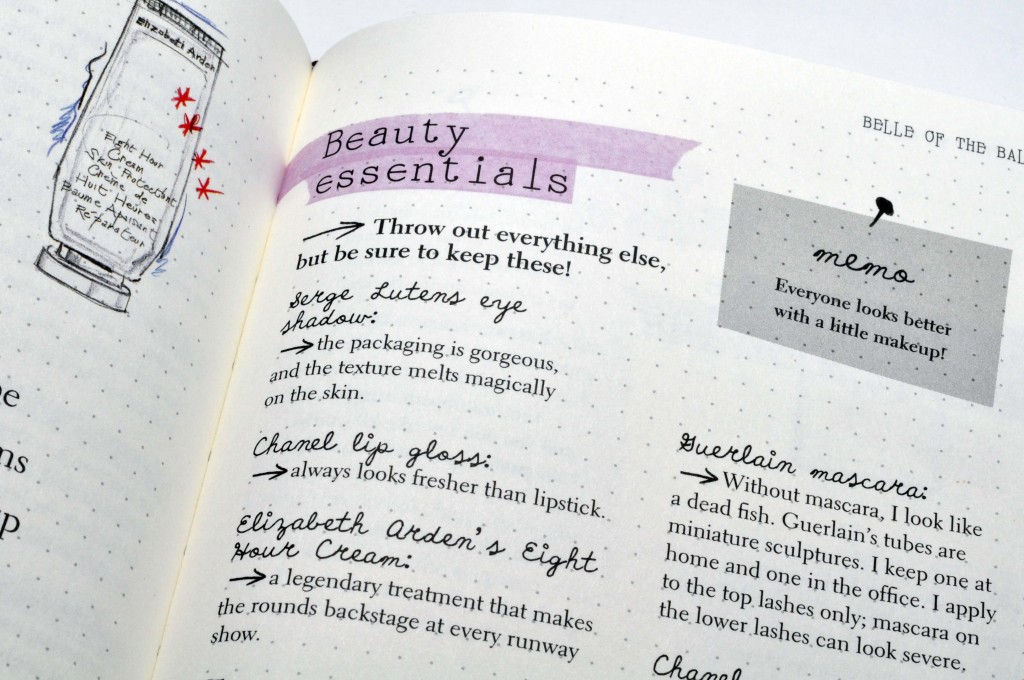 Elizabeth Arden
Eight Hour
Cream
Skin Protectant
Crème de
Huit Heures
Baume Apaisant
Réparateur
ns
BELLE OF THE BAL
Beauty
essentials
Throw out everything else,
but be sure to keep these!
Serge Lutens eye
shadow:
the packaging is gorgeous,
and the texture melts magically
on the skin.
Chanel lip gloss:
always looks fresher than lipstick.
Elizabeth Arden's Eight
Hour Cream:
a legendary treatment that makes
the rounds backstage at every runway
show.
memo
Everyone looks better
with a little makeup!
Guerlain mascara:
Without mascara, I look like
a dead fish. Guerlain's tubes are
miniature sculptures. I keep one at
home and one in the office. I apply
to the top lashes only; mascara on
the lower lashes can look severe.
Chanel